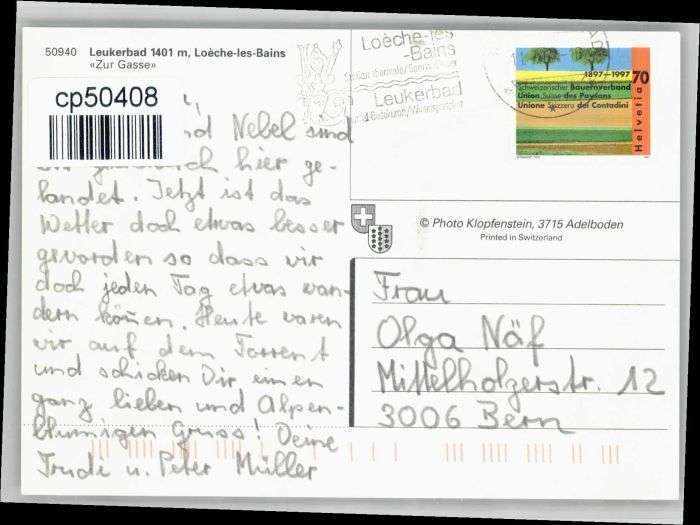 50940 Leukerbad 1401 m, Loèche-les-Bains
«Zur Gasse»
cp50408
Nebel sind
hier ge-
landet. Jetzt ist das
Wetter doch etwas besser
geworden so dass wir
doch jeden Tag etwas wan-
dern können. Heute waren
wir auf dem Torrent
und schicken Dir einen
ganz lieben und Alpen-
blumigen Gruss! Deine
Trudi u. Peter Müller
Loèche-les
-Bains
Leukerbad
1897–1997 70
Schweizerischer Bauernverband
Union Suisse des Paysans
Unione Svizzera dei Contadini
Helvetia
© Photo Klopfenstein, 3715 Adelboden
Printed in Switzerland
Frau
Olga Näf
Mittelholzerstr. 12
3006 Bern